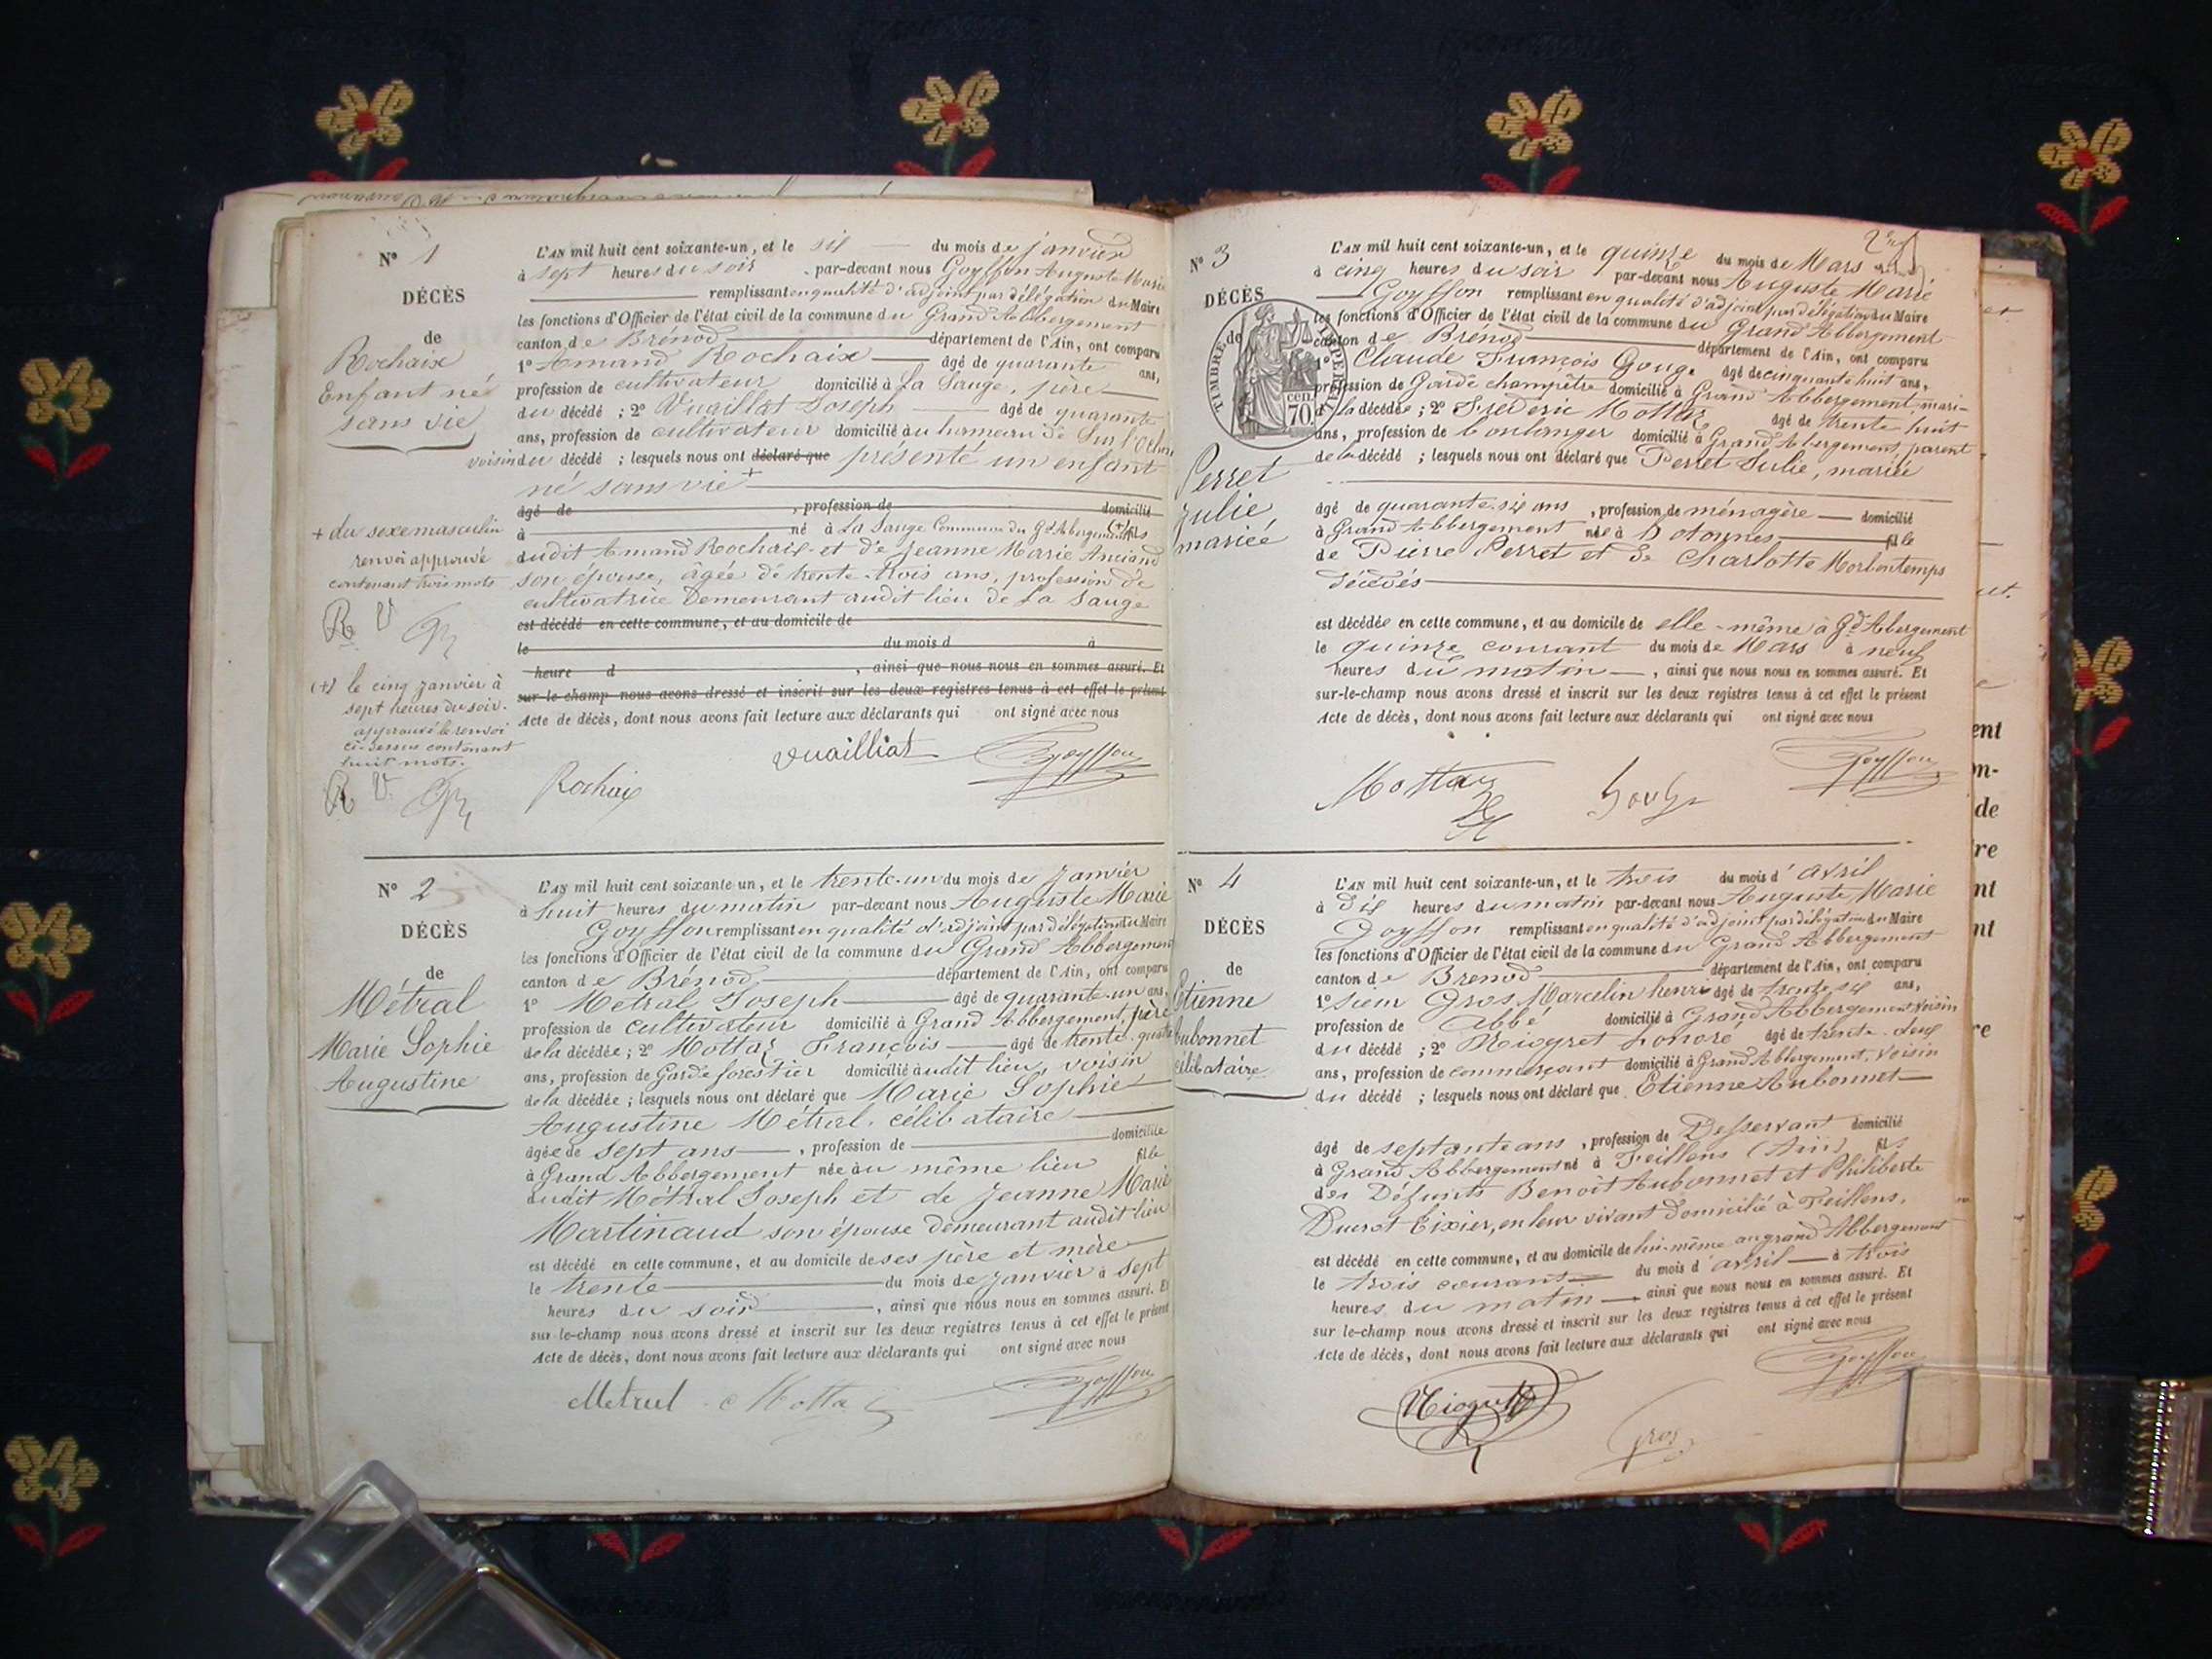 N° 1
DÉCÈS
de
Rochaix
Enfant né
sans vie
+ du sexe masculin
renvoi approuvé
contenant trois mots
R V
(+) le cinq janvier à
sept heures du soir.
approuvé le renvoi
ci-dessus contenant
huit mots.
R V.
L'AN mil huit cent soixante-un, et le six du mois de janvier
à sept heures du soir par-devant nous Goyffon Auguste Marie
remplissant en qualité d'adjoint par délégation du Maire
les fonctions d'Officier de l'état civil de la commune du Grand Abbergement
canton de Brénod département de l'Ain, ont comparu
1° Amand Rochaix âgé de quarante ans,
profession de cultivateur domicilié à La Sauge, père
du décédé ; 2° Vuaillat Joseph âgé de quarante
ans, profession de cultivateur domicilié au hameau de Sur
voisin du décédé ; lesquels nous ont déclaré que présenté un enfant
né sans vie +
âgé de , profession de domicilié
à né à La Sauge Commune du Gd Abbergement (+) fils
dudit Amand Rochaix et de Jeanne Marie Anciand
son épouse, âgée de trente-trois ans, profession de
cultivatrice demeurant audit lieu de La Sauge
est décédé en cette commune, et au domicile de
le du mois d à
heure d , ainsi que nous nous en sommes assuré. Et
sur-le-champ nous avons dressé et inscrit sur les deux registres tenus à cet effet le présent
Acte de décès, dont nous avons fait lecture aux déclarants qui ont signé avec nous
Vuailliat Goyffon
Rochaix
N° 2
DÉCÈS
de
Métral
Marie Sophie
Augustine
L'AN mil huit cent soixante-un, et le trente-un du mois de Janvier
à huit heures du matin par-devant nous Auguste Marie
Goyffon remplissant en qualité d'adjoint par délégation du Maire
les fonctions d'Officier de l'état civil de la commune du Grand Abbergement
canton de Brénod département de l'Ain, ont comparu
1° Métral Joseph âgé de quarante-un ans,
profession de cultivateur domicilié à Grand Abbergement, père
de la décédée ; 2° Mottaz François âgé de trente-quatre
ans, profession de Garde forestier domicilié audit lieu, voisin
de la décédée ; lesquels nous ont déclaré que Marie Sophie
Augustine Métral, célibataire
âgée de sept ans , profession de domiciliée
à Grand Abbergement née au même lieu fille
dudit Métral Joseph et de Jeanne Marie
Martinaud son épouse demeurant audit lieu
est décédé en cette commune, et au domicile de ses père et mère
le trente du mois de janvier à sept
heures du soir , ainsi que nous nous en sommes assuré. Et
sur-le-champ nous avons dressé et inscrit sur les deux registres tenus à cet effet le présent
Acte de décès, dont nous avons fait lecture aux déclarants qui ont signé avec nous
Metral Motta Goyffon
N° 3
DÉCÈS
de
TIMBRE IMPERIAL
70 cen.
Perret
Julie
mariée
L'AN mil huit cent soixante-un, et le quinze du mois de Mars
à cinq heures du soir par-devant nous Auguste Marie
Goyffon remplissant en qualité d'adjoint par délégation du Maire
les fonctions d'Officier de l'état civil de la commune du Grand Abbergement
canton de Brénod département de l'Ain, ont comparu
1° Claude François Gouge âgé de cinquante huit ans,
profession de Garde champêtre domicilié à Grand Abbergement, mari
de la décédée ; 2° Frédéric Mottaz âgé de trente huit
ans, profession de boulanger domicilié à Grand Abergement, parent
de la décédé ; lesquels nous ont déclaré que Perret Julie, mariée
âgé de quarante-six ans , profession de ménagère domicilié
à Grand Abbergement née à Hotonnes fille
de Pierre Perret et de Charlotte Morbontemps
décédés
est décédée en cette commune, et au domicile de elle-même à Gd Abergement
le quinze courant du mois de Mars à neuf
heures du matin , ainsi que nous nous en sommes assuré. Et
sur-le-champ nous avons dressé et inscrit sur les deux registres tenus à cet effet le présent
Acte de décès, dont nous avons fait lecture aux déclarants qui ont signé avec nous
Mottaz Gouge Goyffon
N° 4
DÉCÈS
de
Etienne
Aubonnet
célibataire
L'AN mil huit cent soixante-un, et le trois du mois d'avril
à dix heures du matin par-devant nous Auguste Marie
Goyffon remplissant en qualité d'adjoint par délégation du Maire
les fonctions d'Officier de l'état civil de la commune du Grand Abbergement
canton de Brenod département de l'Ain, ont comparu
1° sieur Gros Marcelin henri âgé de trente six ans,
profession de Abbé domicilié à Grand Abbergement voisin
du décédé ; 2° Niogret honoré âgé de trente-deux
ans, profession de commerçant domicilié à Grand Abbergement, voisin
du décédé ; lesquels nous ont déclaré que Etienne Aubonnet
âgé de septante ans , profession de Desservant domicilié
à Grand Abbergement né à Feillens (Ain) fils
des Défunts Benoît Aubonnet et Philiberte
Ducrot Tixier, en leur vivant domicilié à Feillens,
est décédé en cette commune, et au domicile de lui-même au grand Abbergement
le trois courant du mois d'avril à trois
heures du matin , ainsi que nous nous en sommes assuré. Et
sur-le-champ nous avons dressé et inscrit sur les deux registres tenus à cet effet le présent
Acte de décès, dont nous avons fait lecture aux déclarants qui ont signé avec nous
Niogret Gros Goyffon